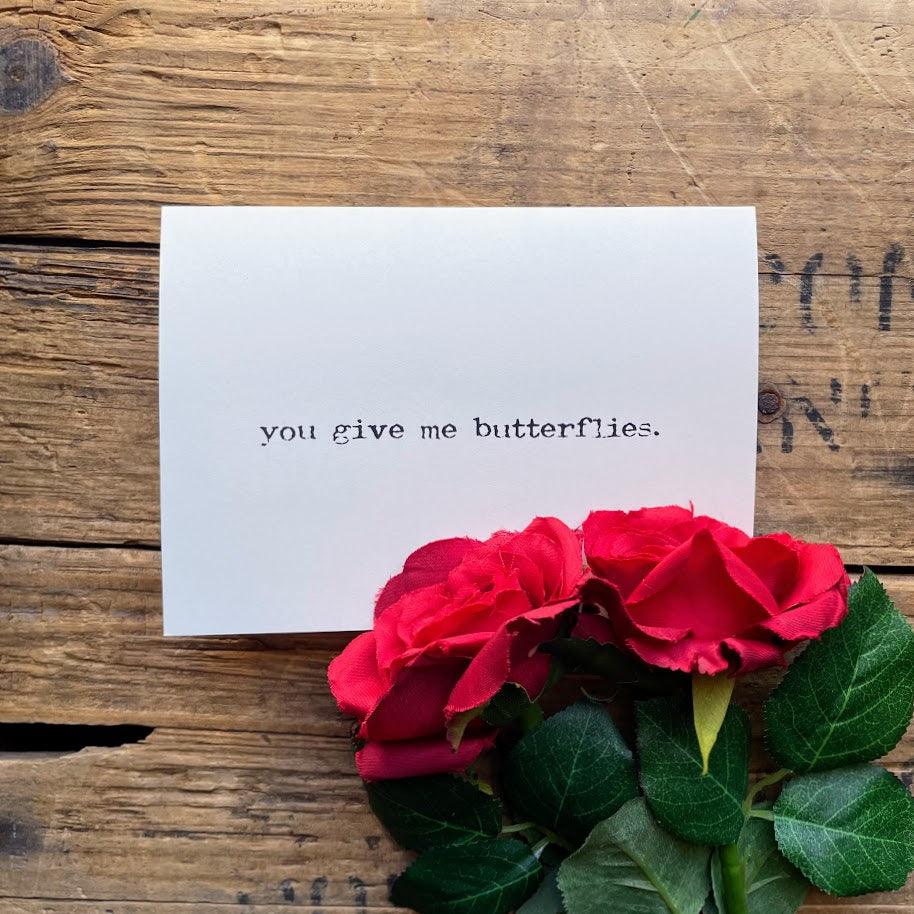 you give me butterflies.